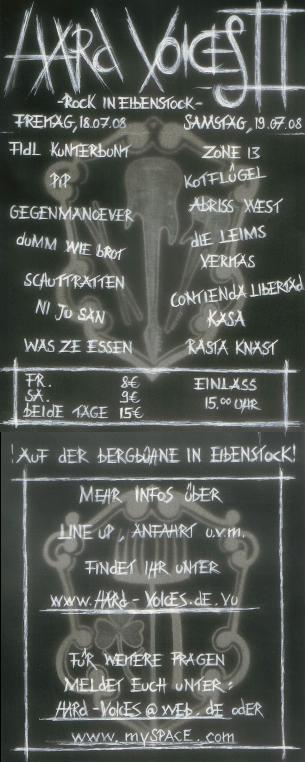 HARD VOICES II
-ROCK IN EIBENSTOCK-
FREITAG, 18.07.08 SAMSTAG, 19.07.08
FIDL KUNTERBUNT
PIP
GEGENMANOEVER
DUMM WIE BROT
SCHUTTRATTEN
NI JU SAN
WAS ZE ESSEN
ZONE 13
KOTFLÜGEL
ABRISS WEST
DIE LEIMS
VERITAS
CONTIENDA LIBERTAD
KASA
RASTA KNAST
FR. 8€
SA. 9€
BEIDE TAGE 15€
EINLASS
15.00 UHR
!AUF DER BERGBÜHNE IN EIBENSTOCK!
MEHR INFOS ÜBER
LINE UP, ANFAHRT U.V.M.
FINDET IHR UNTER
WWW.HARD-VOICES.DE.VU
FÜR WEITERE FRAGEN
MELDET EUCH UNTER:
HARD-VOICES@WEB.DE ODER
WWW.MYSPACE.COM